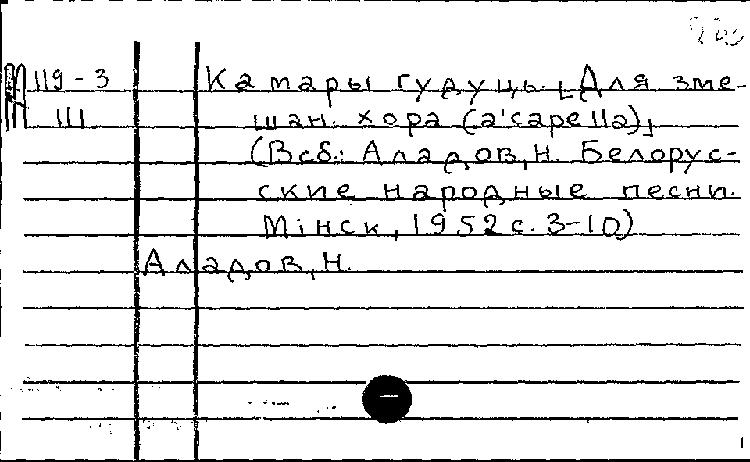 М 119-3 Камары гудуць. [Для зме-
III шан. хора (a'capella)]
(В сб.: Аладов, Н. Белорус-
ские народные песни.
Мінск, 1952 с. 3-10)
Аладов, Н.